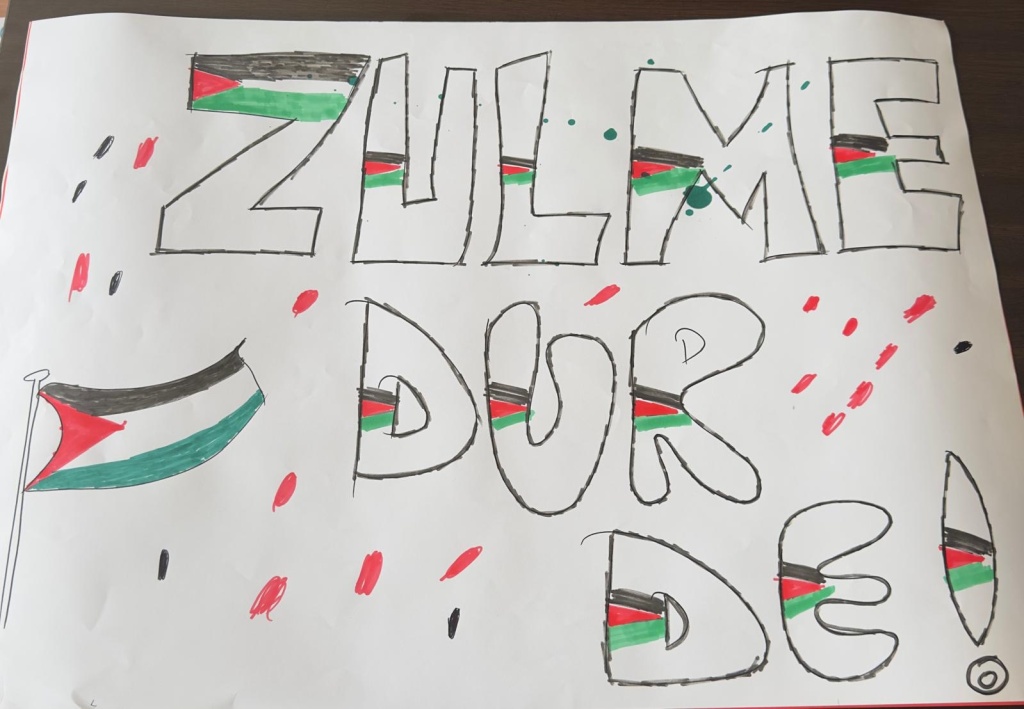 ZULME
DUR
DE!